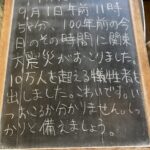 9月1日午前11時
58分、100年前の今
日のその時間に関東
大震災がおこりました。
10万人を超える犠牲者を
出しました。こわいです。い
つおこるか分かりません。しっ
かりと備えましょう。